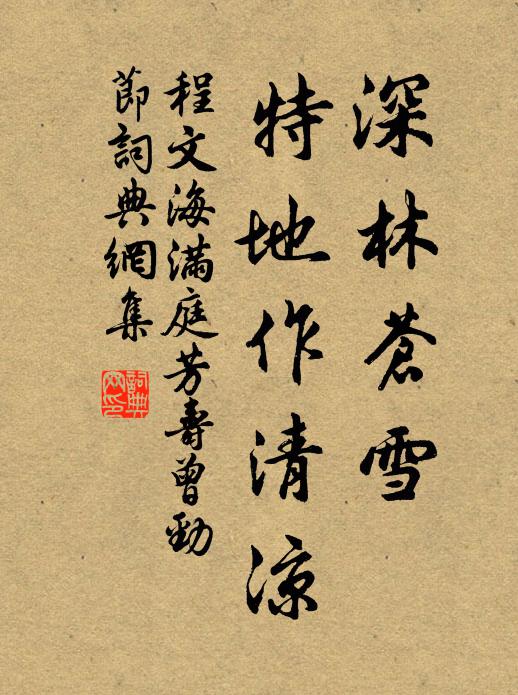 深林蒼雪
特地作清涼
程文海滿庭芳壽曾勁
節詞典網集
詞典網印